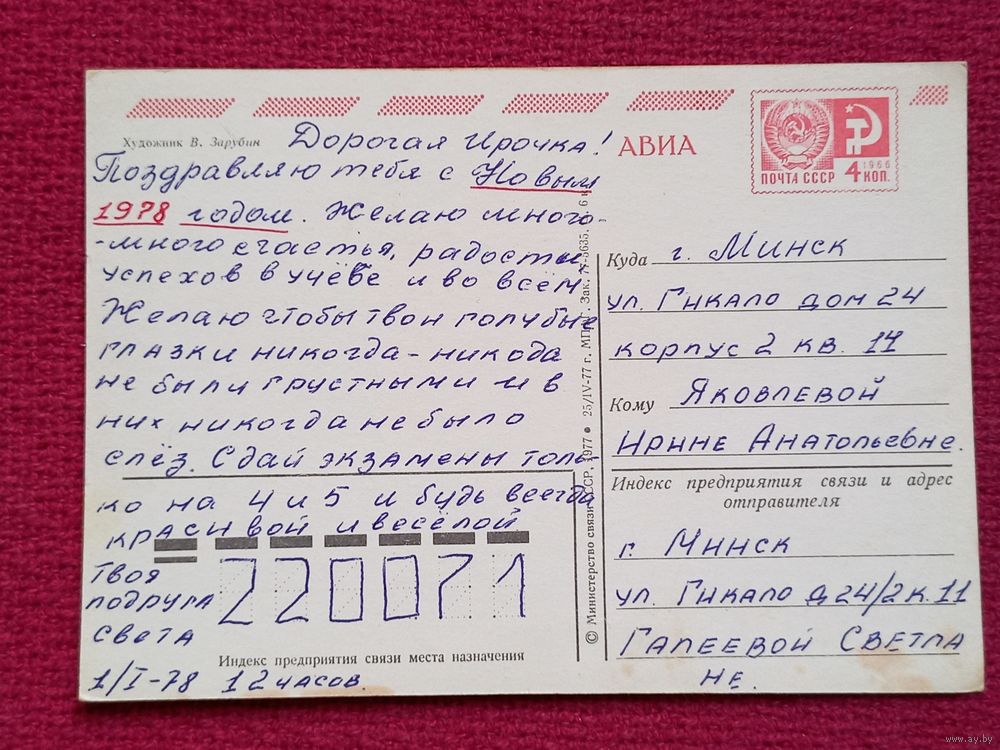 Художник В. Зарубин
Дорогая Ирочка!
Поздравляю тебя с Новым
1978 годом. Желаю много-
-много счастья, радости,
успехов в учёбе и во всём.
Желаю чтобы твои голубые
глазки никогда-никода
не были грустными и в
них никогда не было
слёз. Сдай экзамены толь
ко на 4 и 5 и будь всегда
красивой и весёлой
Твоя
подруга
Света
1/I-78 12 часов.
220071
Индекс предприятия связи места назначения
© Министерство связи СССР, 1977 • 25/IV-77 г. Зак. 77-5635. 6 к
АВИА
ПОЧТА СССР
1966
4 КОП.
Куда г. Минск
ул. Гикало дом 24
корпус 2 кв. 14
Кому Яковлевой
Ирине Анатольевне.
Индекс предприятия связи и адрес
отправителя
г. Минск
ул. Гикало д 24/2 к. 11
Галеевой Светла
не.
www.ay.by